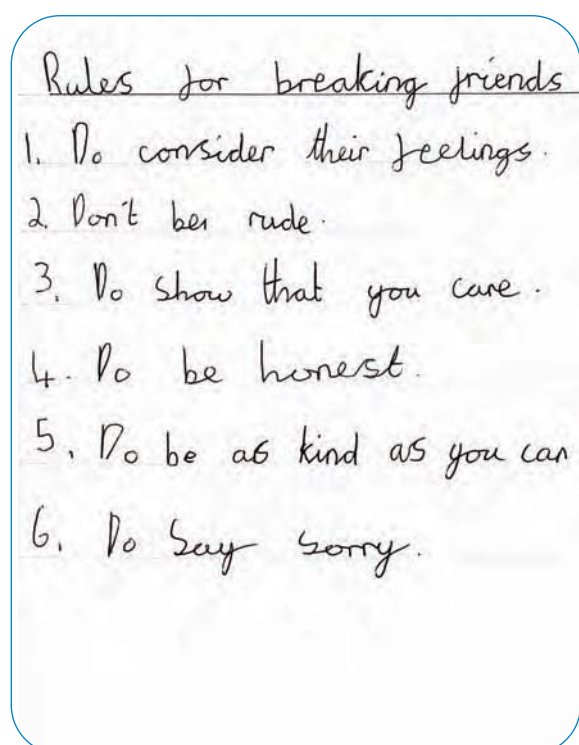 Rules for breaking friends
1. Do consider their feelings.
2. Don't be rude.
3. Do show that you care.
4. Do be honest.
5. Do be as kind as you can
6. Do say sorry.